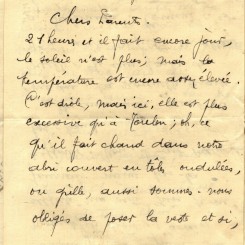 Chers Parents.
21 heures et il fait encore jour,
le soleil n'est plus; mais la
température est encore assez élevée.
C'est drôle, mais ici, elle est plus
excessive qu'à Toulon; oh, ce
qu'il fait chaud dans notre
abri couvert en tôles ondulées,
on grille, aussi sommes-nous
obligés de poser la veste et si,